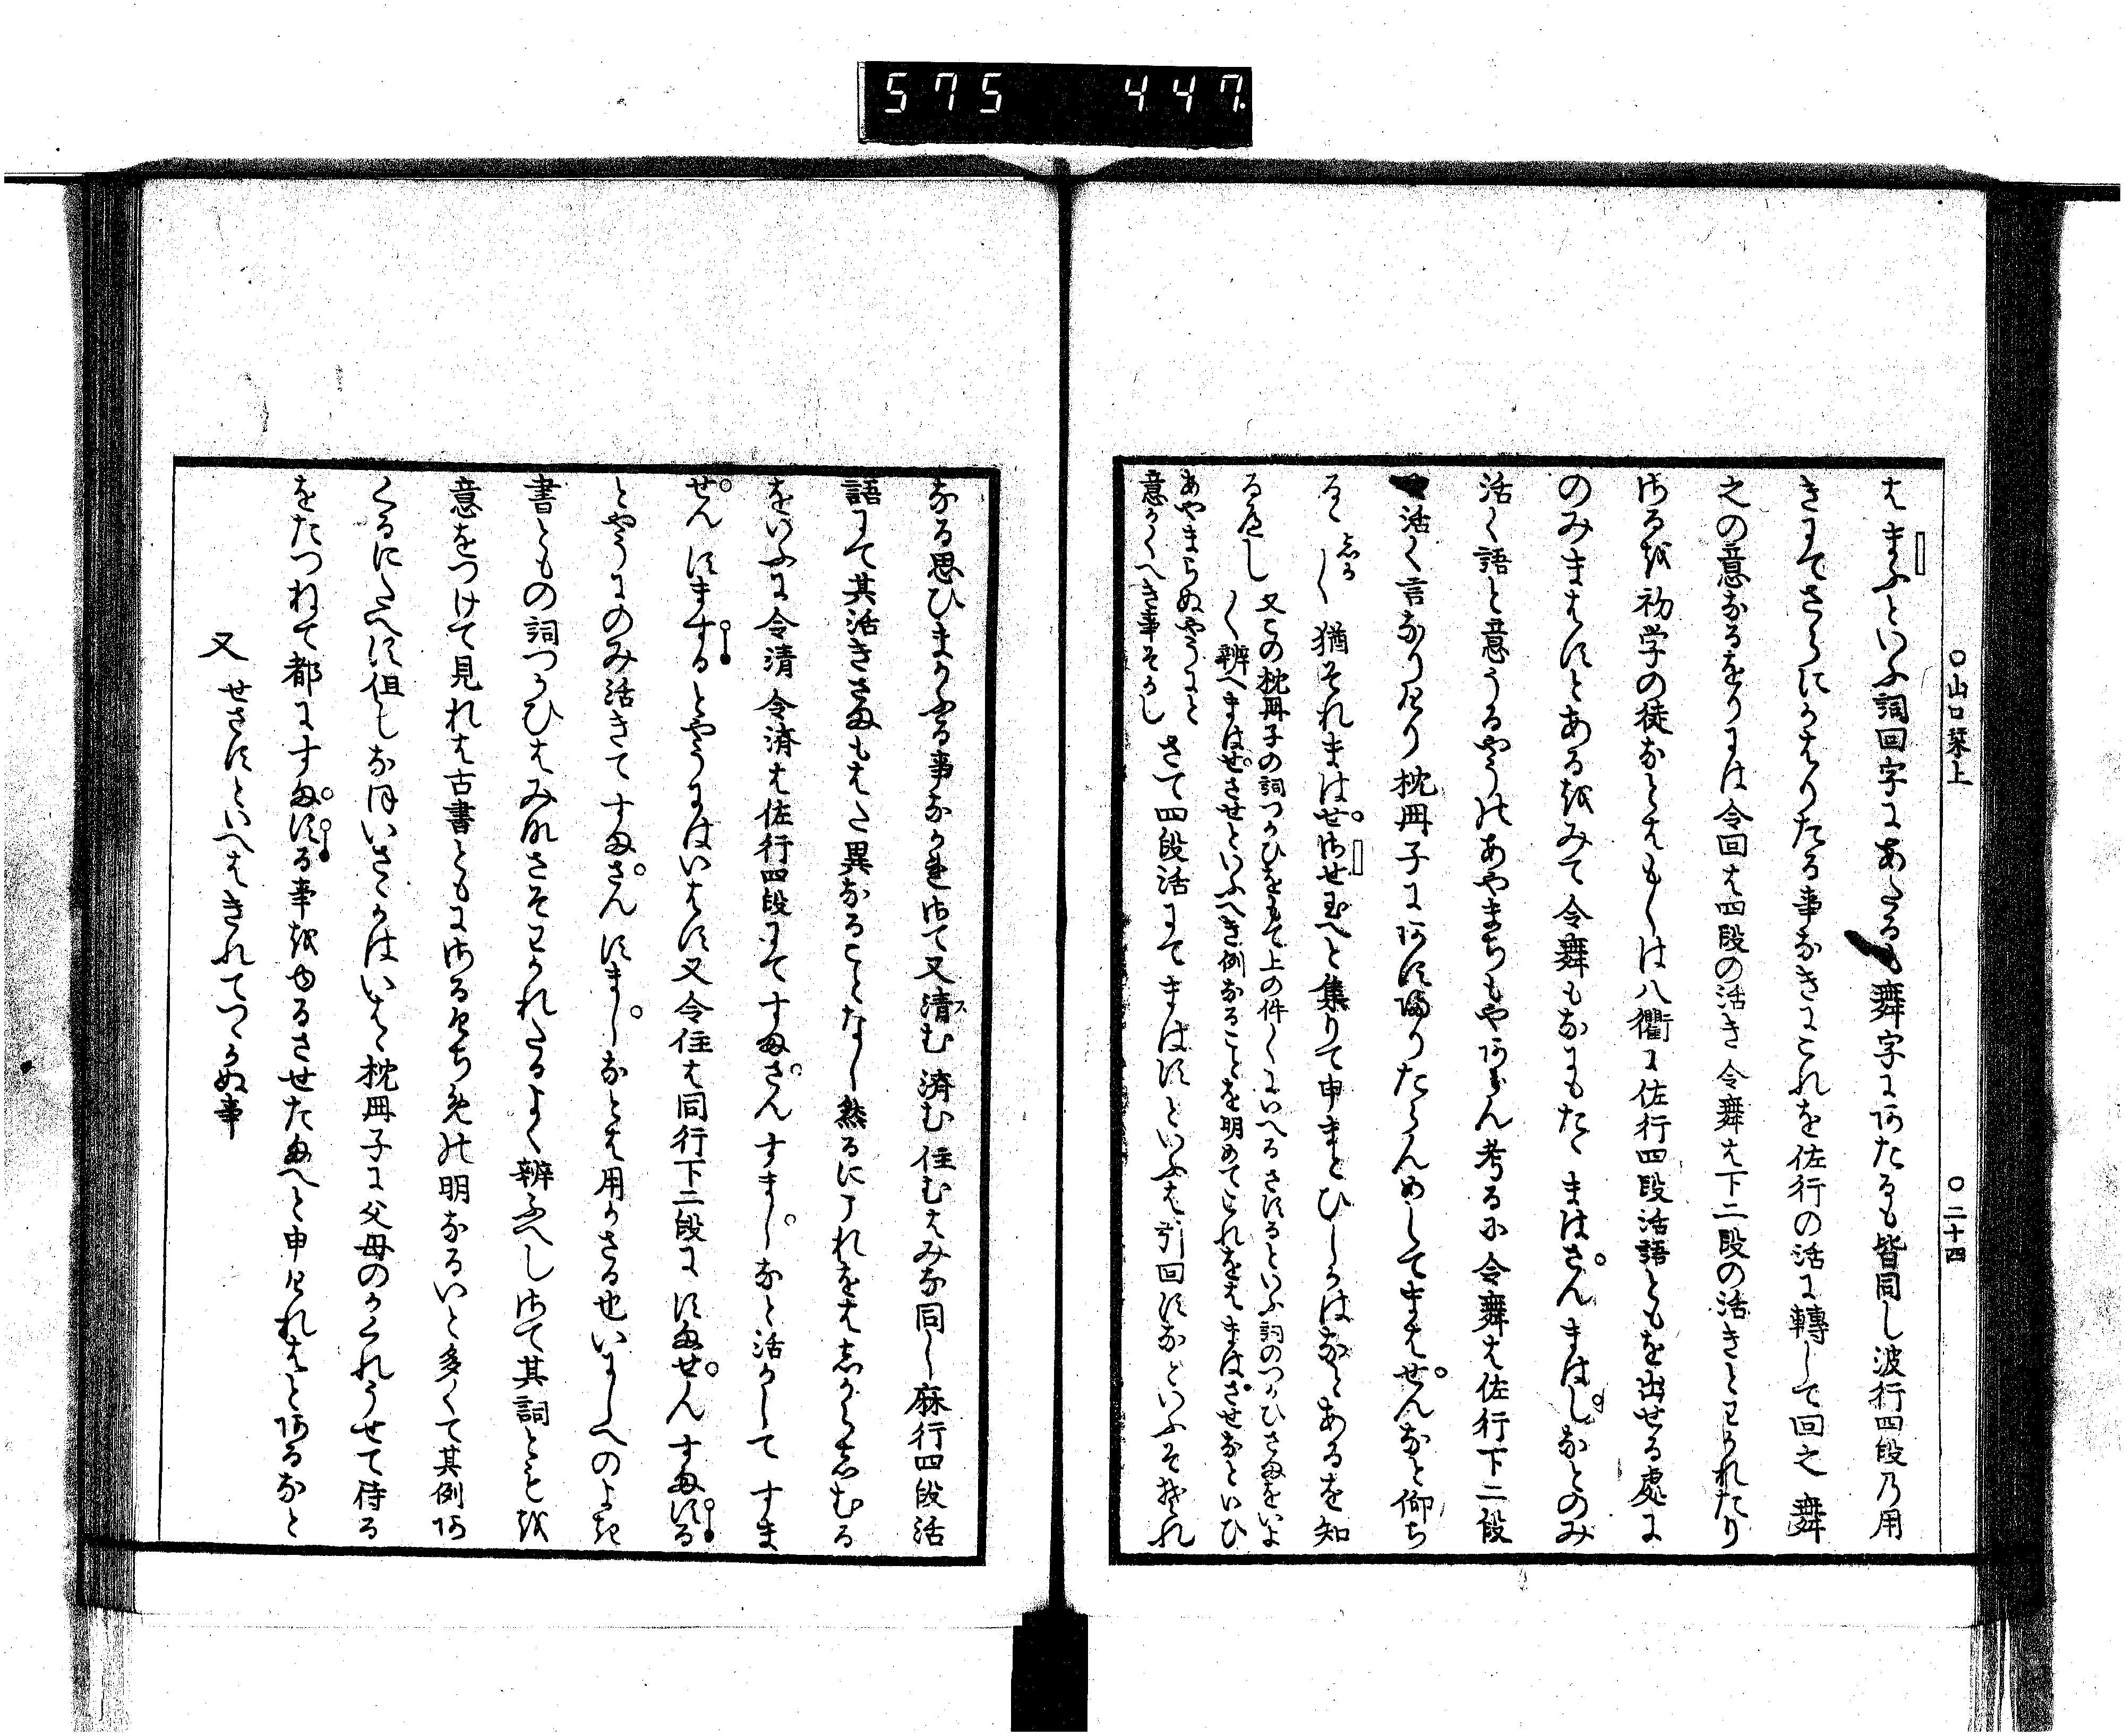 575 447.
〇山口栞上 〇二十四
はまふといふ詞回字にあたる舞字にあたるも皆同し波行四段乃用
きにてさらにかはりたる事なきにこれを佐行の活に轉して回之舞
之の意なるをりには令回は四段の活き令舞は下二段の活きとわかれたり
さるを初学の徒なとはもしは八衢に佐行四段活語ともを出せる處に
のみまはすとあるをみて令舞もなにもたゝまはさんまはしなとのみ
活く語と意うるやうのあやまちもやあらん考るに令舞は佐行下二段
活く言なりけり枕冊子にあす帰りたらんめしてまはせんなと仰ら
るゝしかしく猶それまはせさせ玉へと集りて申まとひしかはなとあるを知
るへし又この枕冊子の詞つかひをもて上の件しくにいへるさするといふ詞のつかひさまをいよ
しく辨へまはせさせといふへき例なることを明めてこれをはまはさせなといひ
あやまらぬやうにと
意かくへき事そかし
さて四段活にてまはすといふは引回すなといふそれ
なる思ひまかふる事なかれさて又清む済む住むはみな同し麻行四段活
語にて其活きさまもはた異なることなし然るにこれをはしからしむる
をいふに令清令済は佐行四段にてすまさんすましなと活かしてすま
せんすまするとやうにはいはす又令住は同行下二段にすませんすまする
とやうにのみ活きてすまさんすましなとは用かさる也いにしへのよき
書ともの詞つかひはみなさそわかれたるよく辨ふへしさて其詞ともを
意をつけて見れは古書ともにさるけちめの明なるいと多くて其例あ
くるにたへす但しなほいさゝかはいはゝ枕冊子に父母のかくれうせて侍る
をたつねて都にすまする事をゆるさせたまへと申けれはとあるなと
又 せさすといへはきれてつゝかぬ事